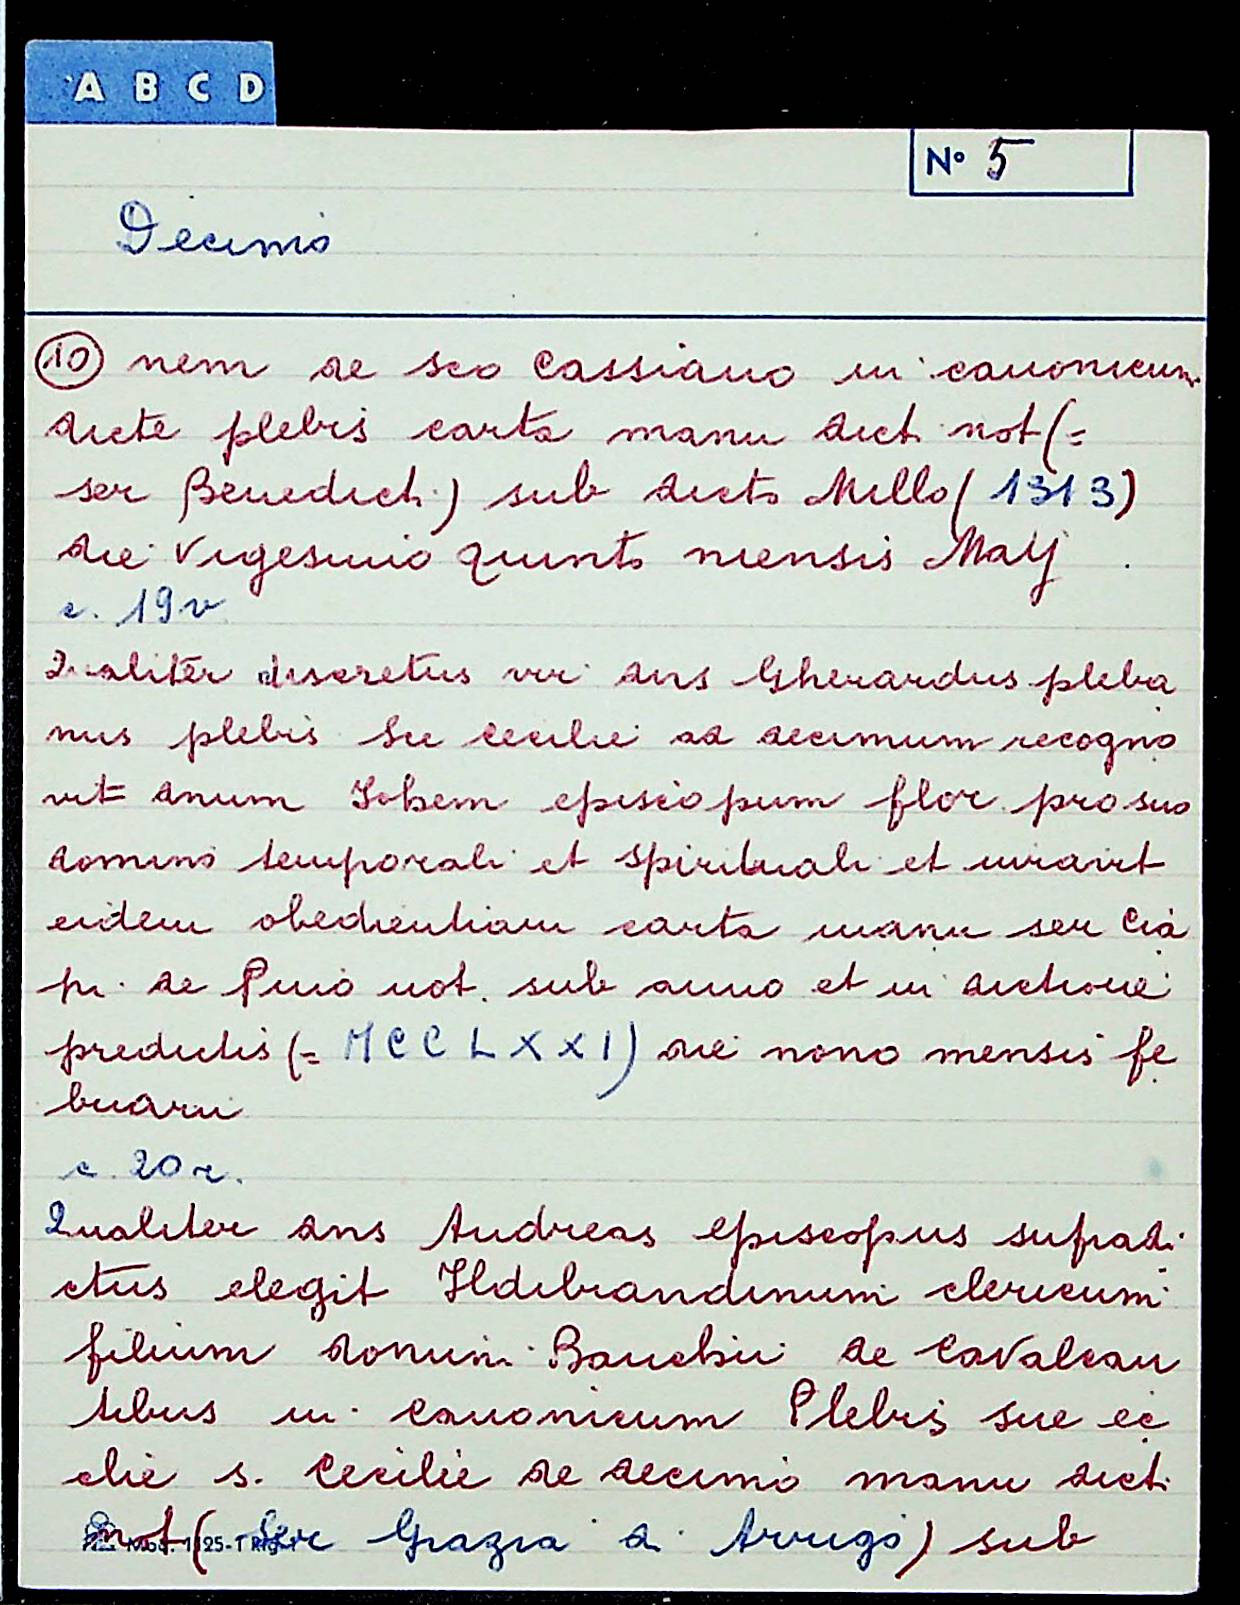 A B C D
N° 5
Decimo
10 nem de sco Cassiano in canonicum
dicte plebis carta manu dict. not (=
ser Benedict.) sub dicto Millo ( 1313)
die vigesimo quinto mensis Maij
c. 19 v.
Qualiter discretus vir dns Gherardus pleba
nus plebis Sce Cecilie ad decimum recogno
vit dnum Iohem episcopum flor. pro suo
domino temporali et spirituali et iuravit
eidem obedientiam carta manu ser Cia
pi. de Puio not. sub anno et in dictione
predictis (= MCCLXXI) die nono mensis fe
bruarii
c. 20 r.
Qualiter dns Andreas episcopus supradi
ctus elegit Ildibrandinum clericum
filium domini Banchii de Cavalcan
tibus in canonicum Plebis sue ec
clie s. Cecilie de decimo manu dicti
not ( Ser Grazia d. Arrigo) sub